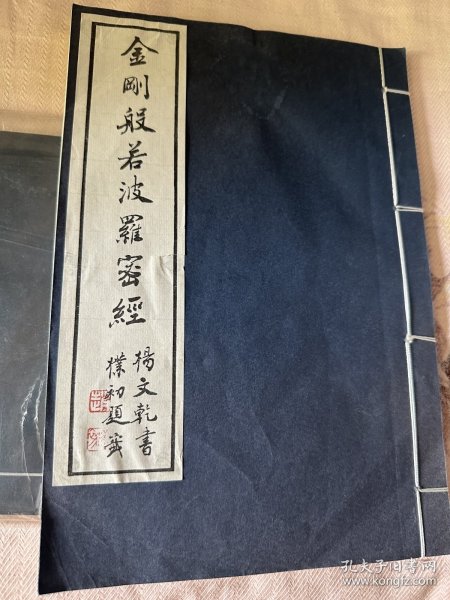 金剛般若波羅密經
楊文乾書
樸初題簽
孔夫子旧书网
www.kongfz.com